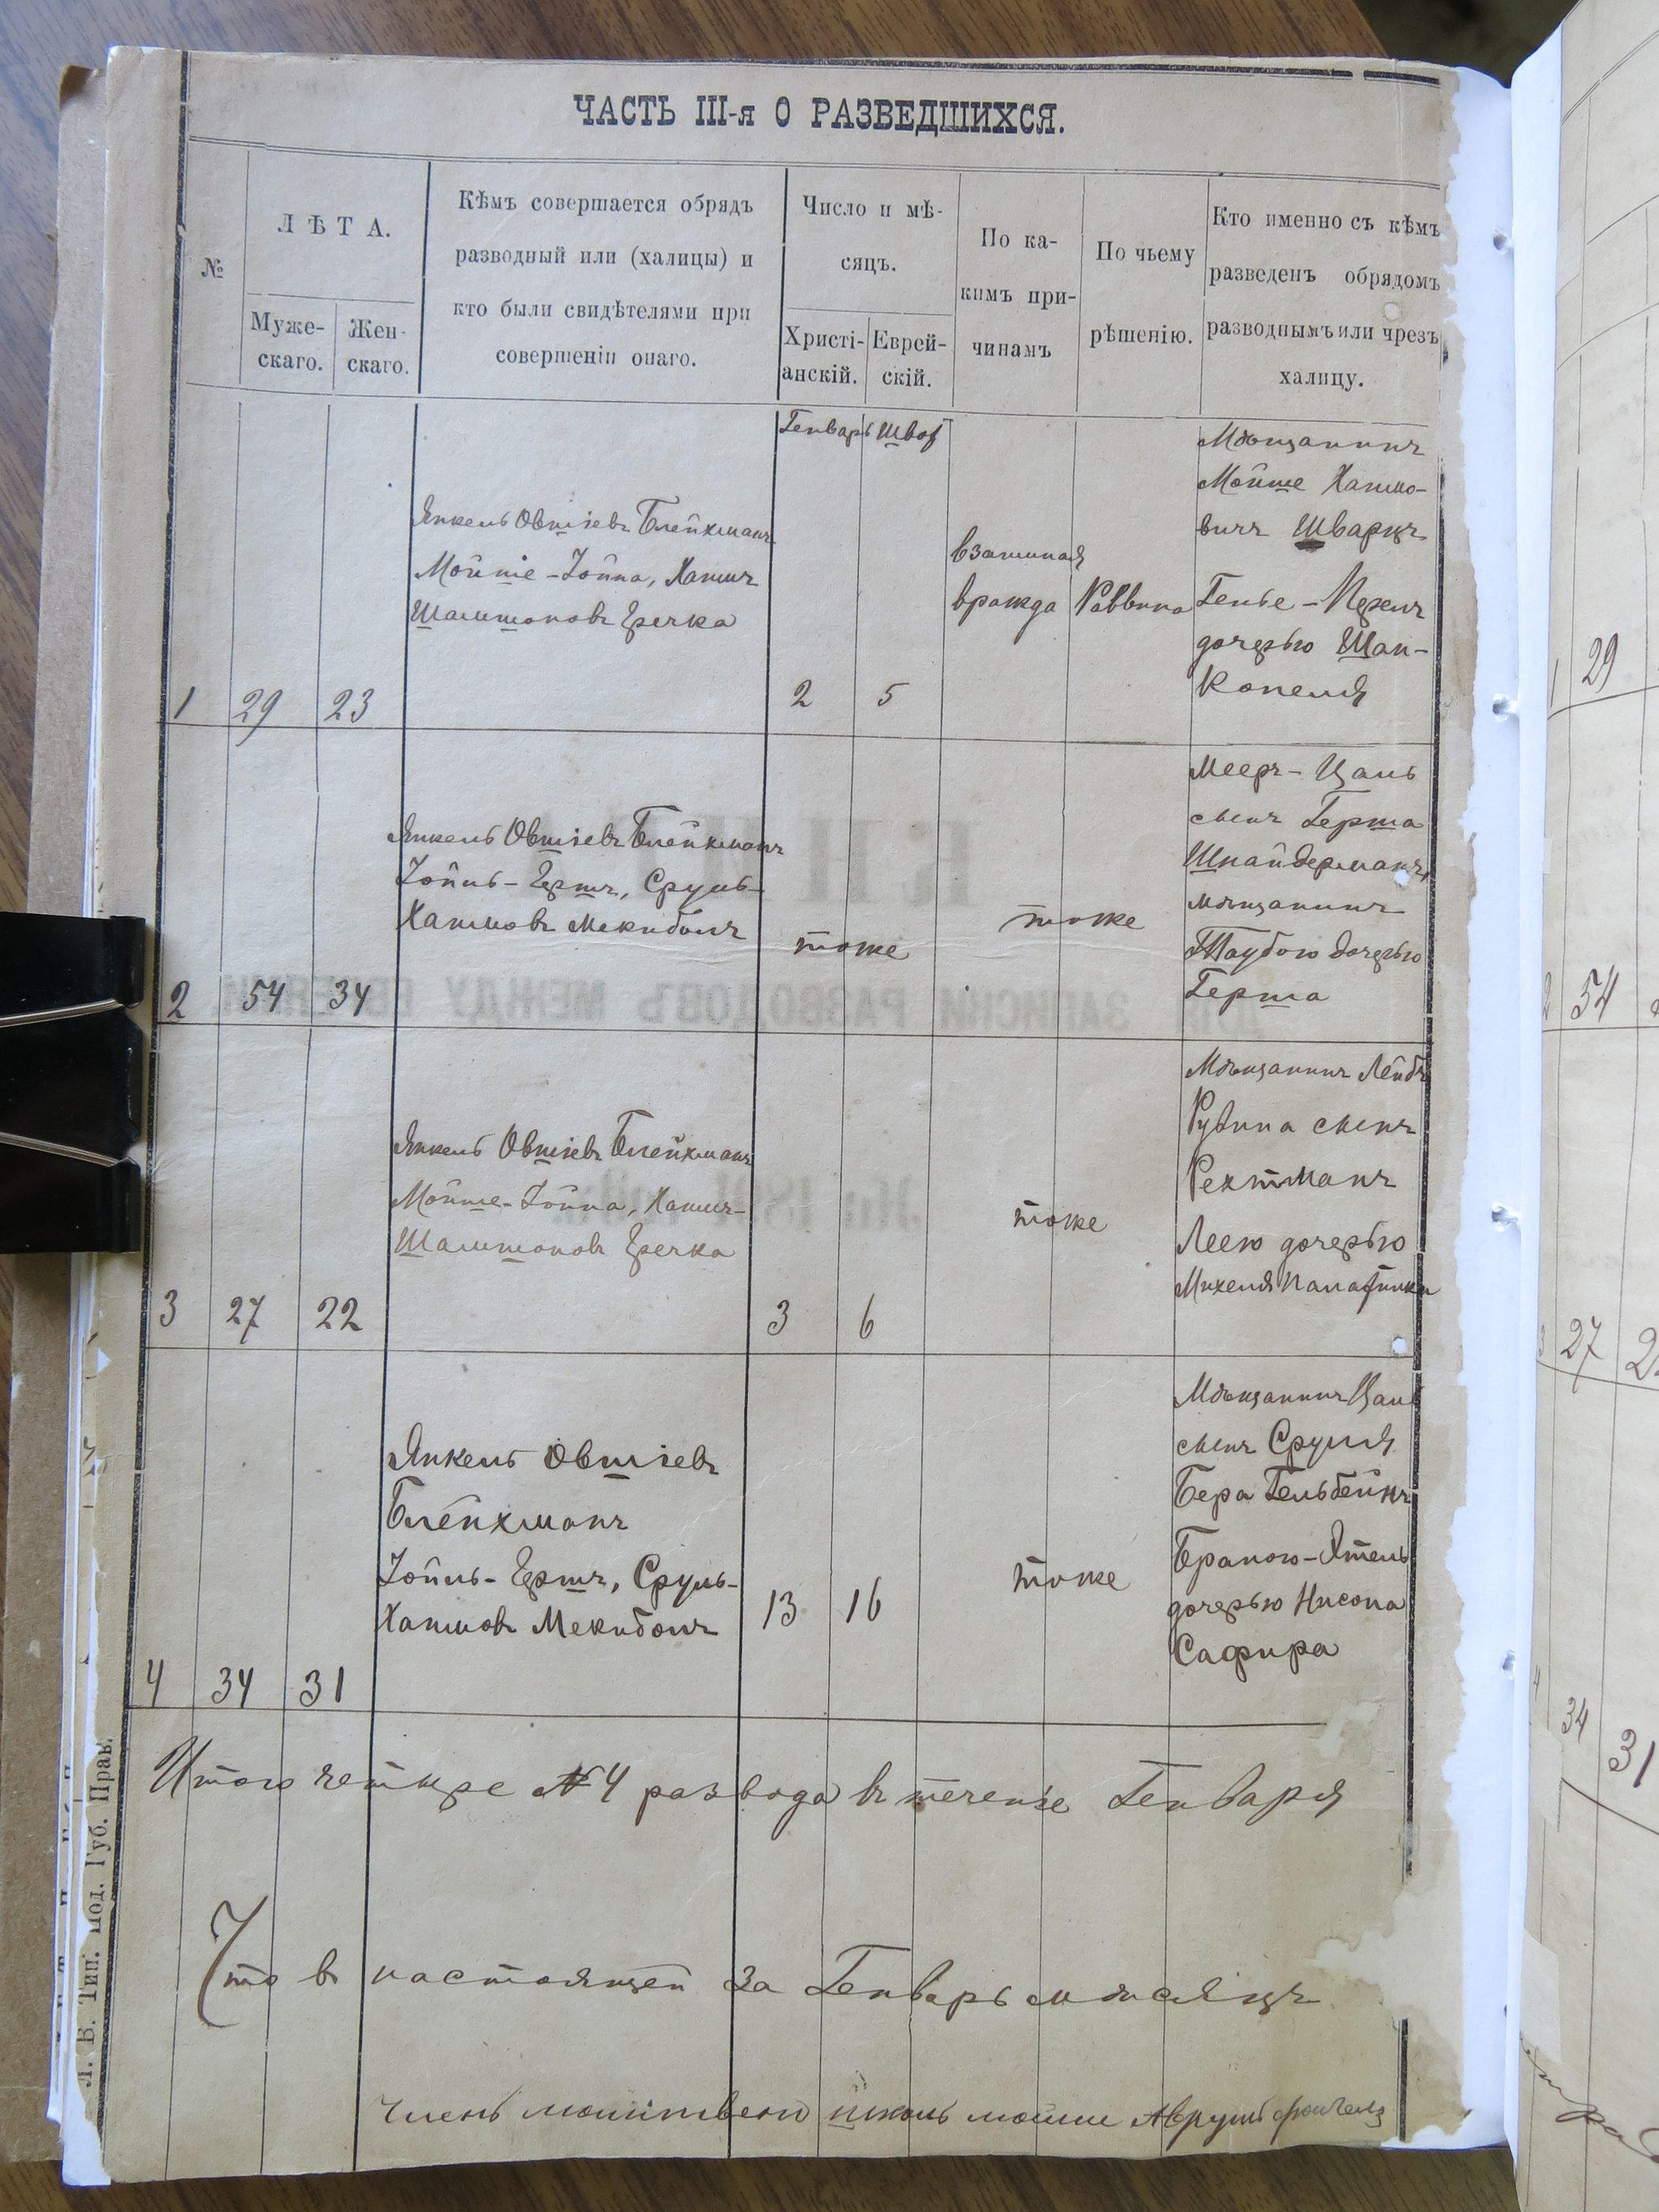 ЧАСТЬ III-я О РАЗВЕДШИХСЯ.
№
ЛѢТА.
Муже-
скаго.
Жен-
скаго.
Кѣмъ совершается обрядъ
разводный или (халицы) и
кто были свидѣтелями при
совершеніи онаго.
Число и мѣ-
сяцъ.
Христі-
анскій.
Еврей-
скій.
По ка-
кимъ при-
чинамъ
По чьему
рѣшенію.
Кто именно съ кѣмъ
разведенъ обрядомъ
разводнымъ или чрезъ
халицу.
1
29
23
Янкель Овшіевъ Блейхманъ
Мойше-Іойна, Хаимъ
Шамшоновъ Гречка
Генварь
2
Шват
5
взаимная
вражда
Раввина
Мѣщанинъ
Мойше Хаимо-
вичъ Шварцъ
Генье-Перель
дочерью Шай-
Копеля
2
54
34
Янкель Овшіевъ Блейхманъ
Іойль-Герш, Сруль-
Хаимовъ Мекиболъ
тоже
тоже
Мееръ-Цаль
сынъ Герша
Шнайдерманъ,
мѣщанинъ
Таубою дочерью
Герша
3
27
22
Янкель Овшіевъ Блейхманъ
Мойше-Іойна, Хаимъ-
Шамшоновъ Гречка
3
6
тоже
Мѣщанинъ Лейбъ
Рувина сынъ
Рехтманъ
Леею дочерью
Михеля
4
34
31
Янкель Овшіевъ
Блейхманъ
Іойль-Герш, Сруль-
Хаимовъ Мекиболъ
13
16
тоже
Мѣщанинъ Цаль
сынъ Сруля
Бера Гельбейнъ
Браною-Ятель
дочерью Нисона
Сафира
Итого четыре № 4 развода въ теченіе Генваря
Что въ настоящей за Генварь мѣсяцъ
членъ школь мошки Аврумъ
Л. В. Тип. Под. Губ. Прав.
1 29
2 54
3 27
34 31